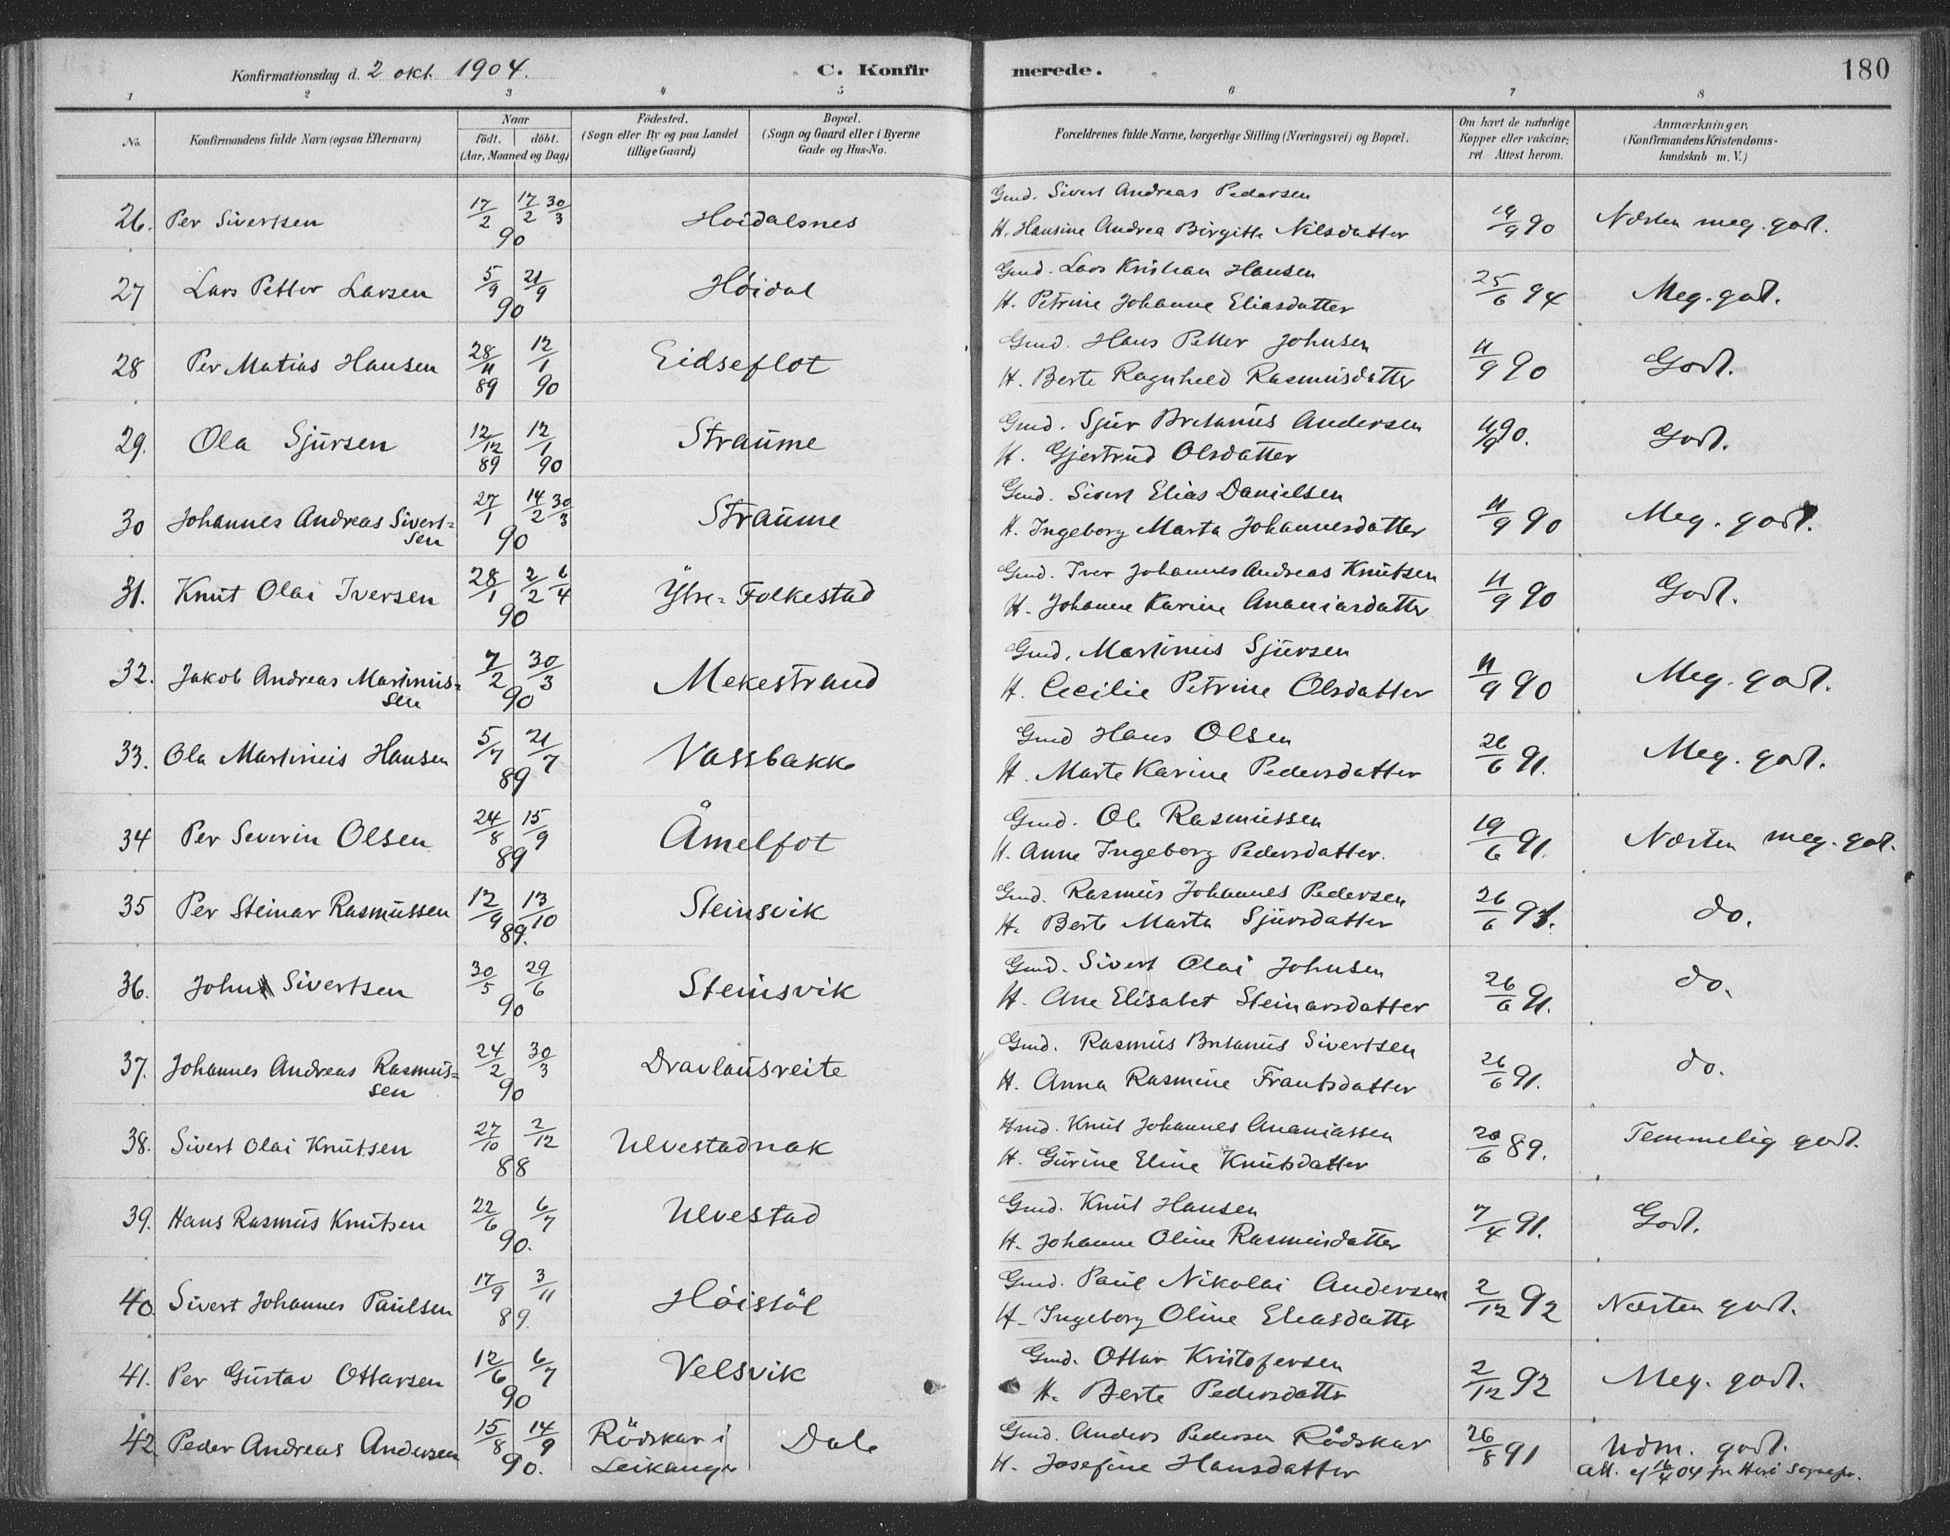 Konfirmationsdag d. 2 okt. 1904.
C. Konfirmerede.
180
1 2 3 4 5 6 7 8
No. | Konfirmandens fulde Navn (ogsaa Efternavn) | Naar født. døbt. (Aar, Maaned og Dag) | Fødested. (Sogn eller By og paa Landet tillige Gaard) | Bopæl. (Sogn og Gaard eller i Byerne Gade og Hus-No. | Forældrenes fulde Navne, borgerlige Stilling (Næringsvei) og Bopæl. | Om havt de naturlige Kopper eller vakcineret. Attest herom. | Anmærkninger. (Konfirmandens Kristendomskundskab m. V.)
26. Per Sivertsen 17/2 17/2 30/3 90 Hoidalsnes Gmd. Sivert Andreas Pedersen
H. Hansine Andrea Birgitte Nilsdatter 19/9 90 Næsten meg. godt.
27 Lars Petter Larsen 5/9 21/9 90 Höidal Gmd. Lars Kristian Hansen
H. Petrine Johanne Eliasdatter 25/6 94 Meg. godt.
28 Per Matias Hansen 28/11 89 12/1 90 Eidseflot Gmd. Hans Petter Johnsen
H. Berte Ragnheld Rasmusdatter 11/9 90 Godt.
29. Ola Sjursen 12/12 89 12/1 90 Straume Gmd. Sjur Britanus Andersen
H. Gjertrud Olsdatter 11/9 90. Godt.
30 Johannes Andreas Sivert=
sen 27/1 14/2 30/3 90 Straume Gmd. Sivert Elias Danielsen
H. Ingeborg Marta Johannesdatter 11/9 90 Meg. godt.
31. Knut Olai Iversen 28/1 2/2 6/4 90 Ytre-Folkestad Gmd. Iver Johannes Andreas Knutsen
H. Johanne Karine Ananiasdatter 11/9 90 Godt.
32. Jakob Andreas Martinus=
sen 7/2 30/3 90 Mekestrand Gmd. Martinus Sjursen
H. Cecilie Petrine Olsdatter 11/9 90 Meg. godt.
33. Ola Martinus Hansen 5/7 21/7 89 Vassbakke Gmd Hans Olsen
H. Marte Karine Pedersdatter 26/6 91. Meg. godt.
34 Per Severin Olsen 24/8 15/9 89 Åmelfot Gmd. Ole Rasmussen
H. Anne Ingeborg Pedersdatter. 19/6 91. Næsten meg. godt.
35 Per Steinar Rasmussen 12/9 13/10 89. Steinsvik Gmd. Rasmus Johannes Pedersen
H. Berte Marta Sjursdatter 26/6 91. do.
36. John Sivertsen 30/5 29/6 90 Steinsvik Gmd. Sivert Olai Johnsen
H. Ane Elisabet Steinarsdatter 26/6 91. do.
37. Johannes Andreas Rasmus=
sen 24/2 30/3 90 Dravlausreite Gmd. Rasmus Britanus Sivertsen
H. Anna Rasmine Frantsdatter 26/6 91. do.
38. Sivert Olai Knutsen 27/10 2/12 88 Ulvestadnak Hmd. Knut Johannes Ananiassen
H. Gurine Eline Knutsdatter 20/6 89. Temmelig godt.
39. Hans Rasmus Knutsen 22/6 6/7 90. Ulvestad Gmd. Knut Hansen
H. Johanne Oline Rasmusdatter 7/4 91. Godt.
40 Sivert Johannes Paulsen 17/9 3/11 89. Höistöl Gmd. Paul Nikolai Andersen
H. Ingeborg Oline Eleasdatter 2/12 92 Næsten godt.
41. Per Gustav Ottarsen 12/6 6/7 90 Velsvik Gmd. Ottar Kristofersen
H. Berte Pedersdatter 2/12 92 Meg. godt.
42 Peder Andreas Andersen 15/8 14/9 90. Rödskar i
Leikanger Dale Gmd. Anders Pedersen Rødskar
H. Josefine Hansdatter 26/8 91 Udm. godt.
Att. af 16/4 04 fra Herö Sognepr.